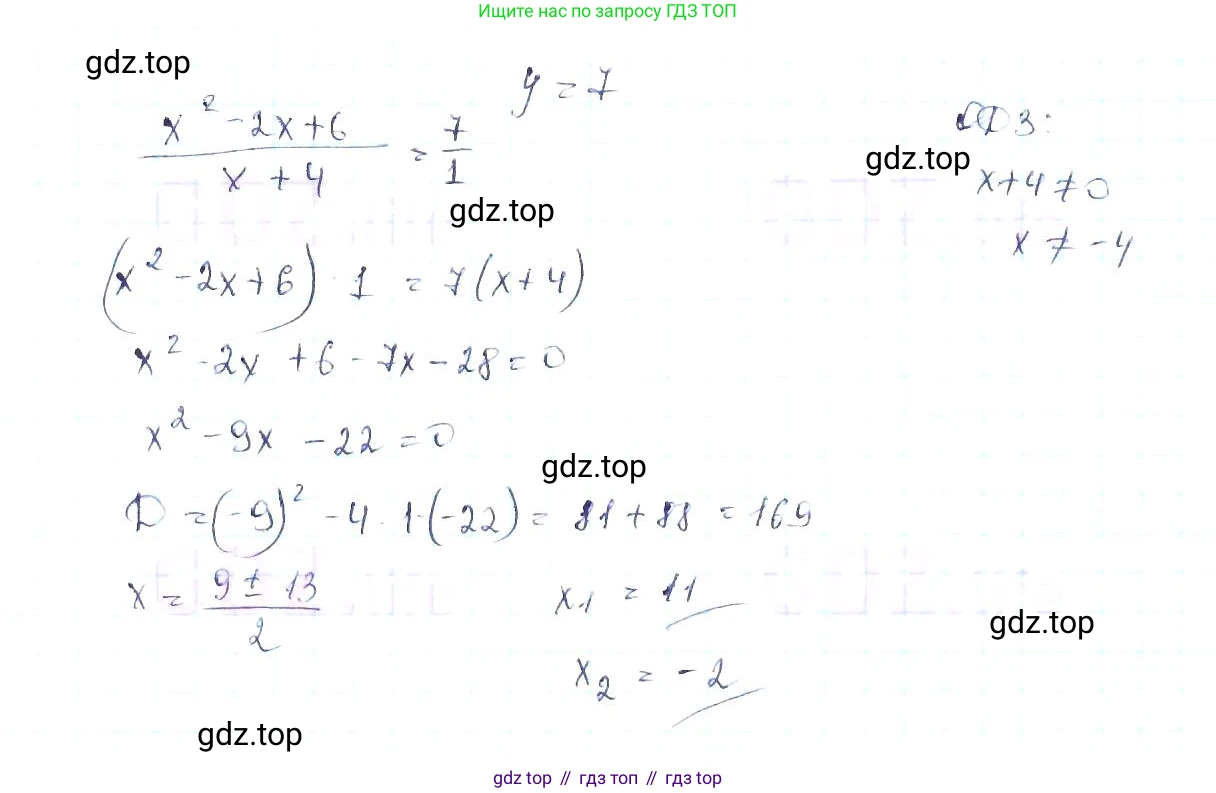 Ищите нас по запросу ГДЗ ТОП
gdz.top
y = 7
(x² - 2x + 6)/(x + 4) = 7/1
ОДЗ:
gdz.top
x + 4 ≠ 0
gdz.top
x ≠ -4
(x² - 2x + 6) · 1 = 7(x + 4)
x² - 2x + 6 - 7x - 28 = 0
x² - 9x - 22 = 0
gdz.top
D = (-9)² - 4 · 1 · (-22) = 81 + 88 = 169
x = (9 ± 13)/2
x₁ = 11
gdz.top
x₂ = -2
gdz.top
gdz top // гдз топ // gdz top